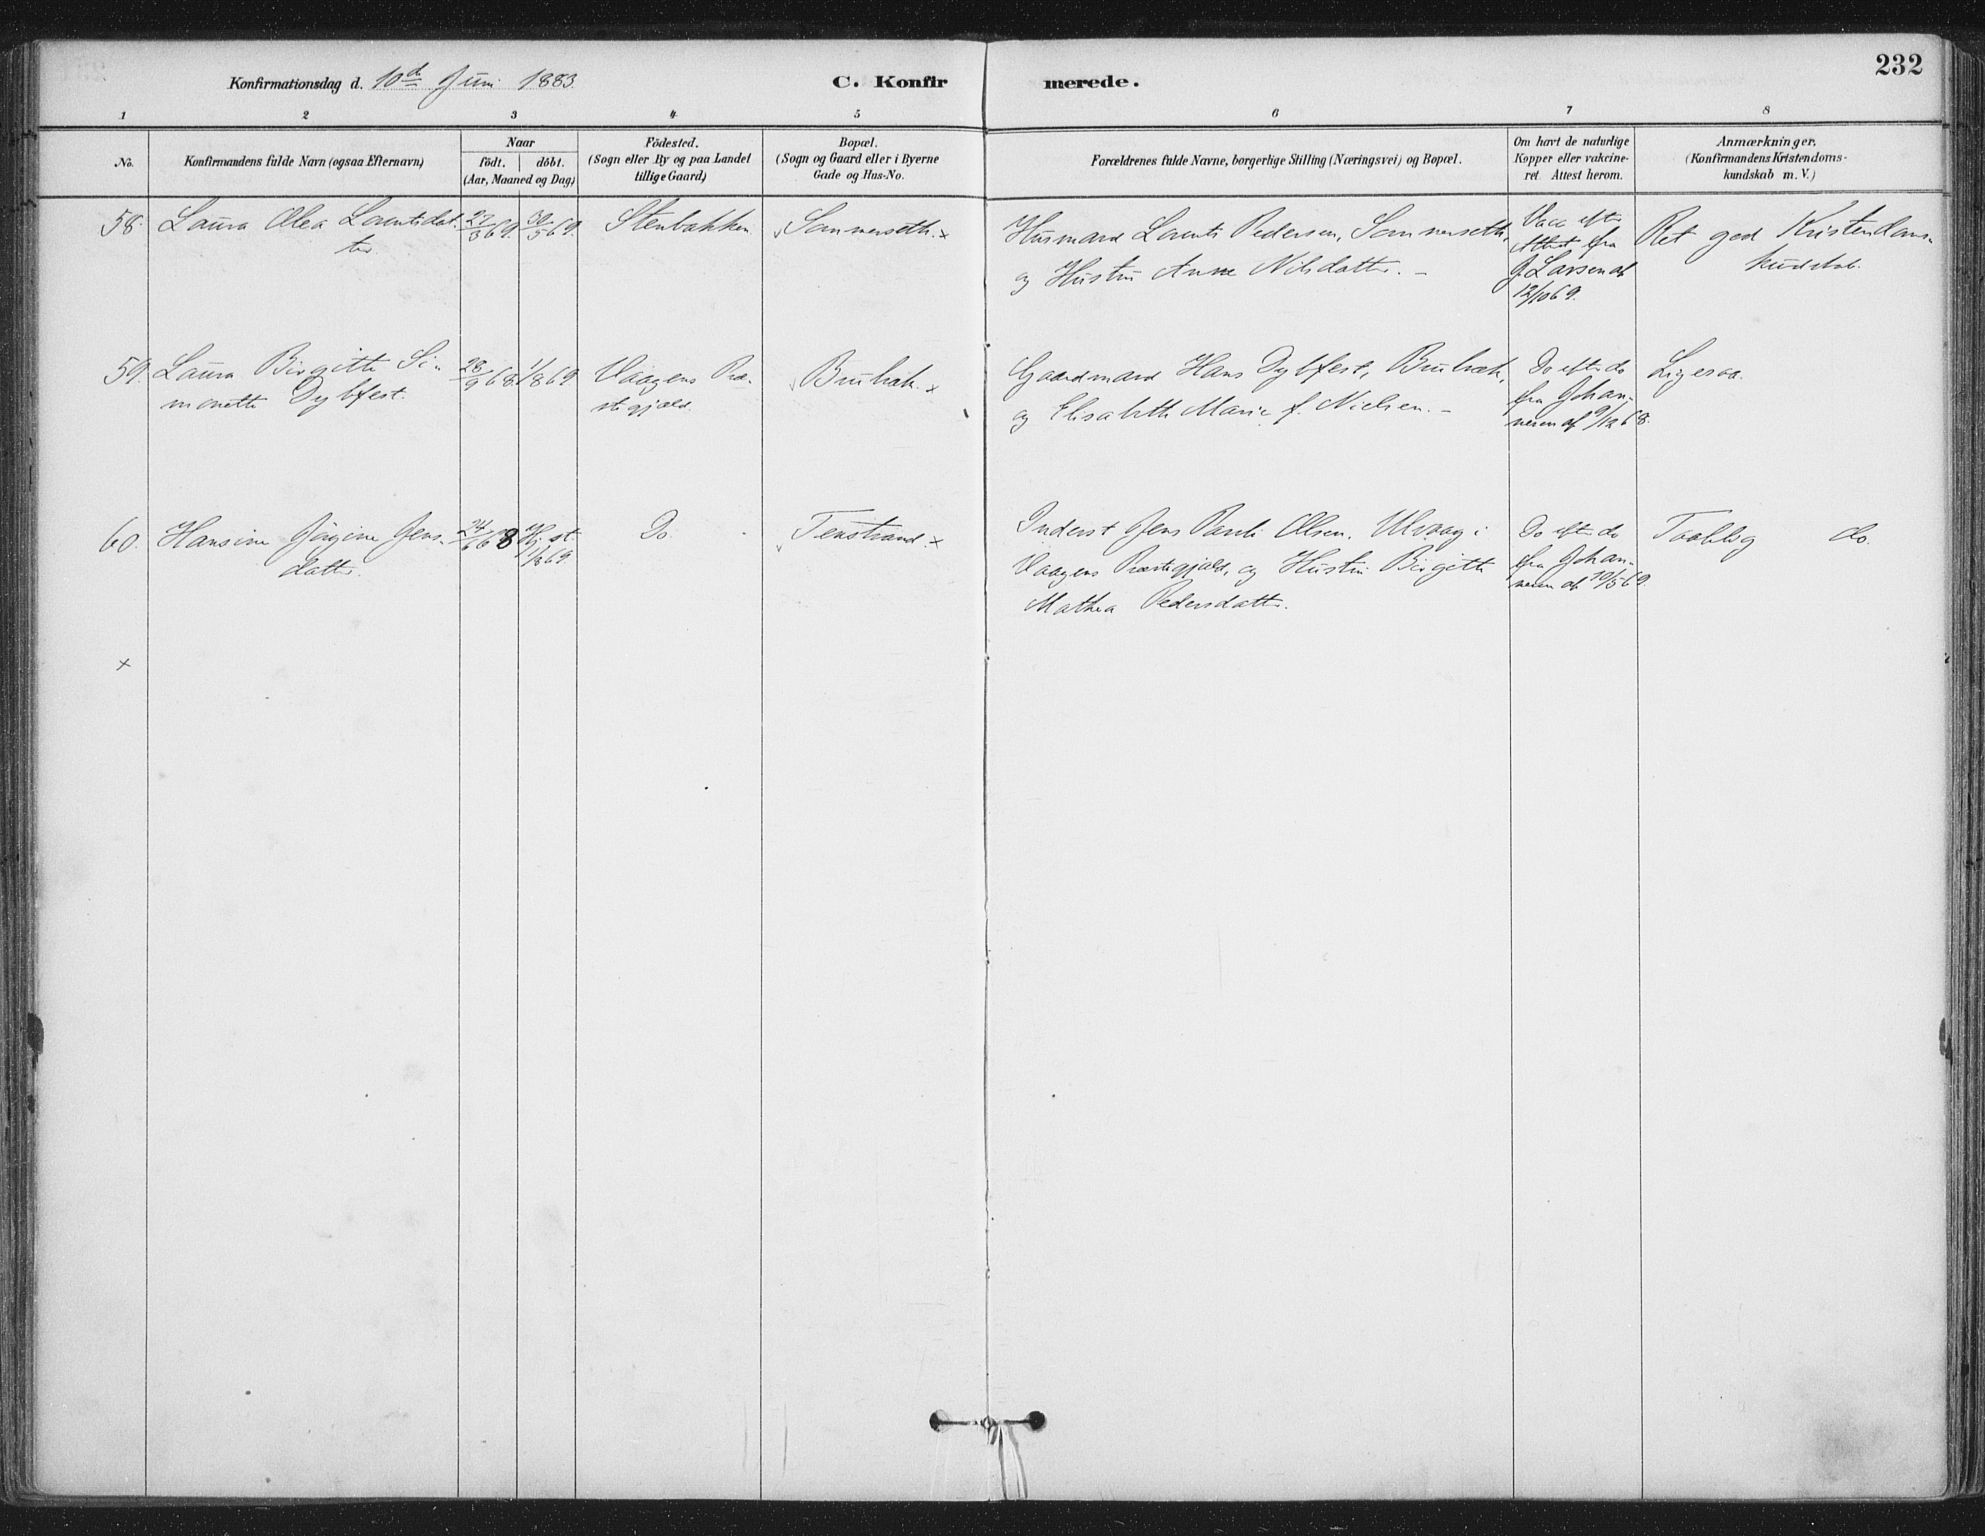 232
Konfirmationsdag d. 10de Juni 1883.
C. Konfirmerede.
1 2 3 4 5 6 7 8
No.
Konfirmandens fulde Navn (ogsaa Efternavn)
Naar
født. døbt.
(Aar, Maaned og Dag)
Födested.
(Sogn eller By og paa Landet
tillige Gaard)
Bopæl.
(Sogn og Gaard eller i Byerne
Gade og Hus-No.
Forældrenes fulde Navne, borgerlige Stilling (Næringsvei) og Bopæl.
Om havt de naturlige
Kopper eller vakcine-
ret. Attest herom.
Anmærkninger.
(Konfirmandens Kristendoms-
kundskab m. V.)
58. Laura Olea Lorentsdat-
ter.
27/3 69. 30/5 69.
Stenbakken.
Sommerseth. x
Husmand Lorents Pedersen, Sommerseth,
og Hustru Anne Nilsdatter. -
Vacc. efter
Attest fra
J. Larsen af
12/10 69.
Ret god Kristendoms-
kundskab.
59. Laura Birgitte Si-
monette Dybfest.
28/9 68 1/8 69
Vaagens Præ-
stegjæld.
x
Gaardmand Hans Dybfest,
og Elisabeth Marie f. Nielsen. -
Do efter do
fra Johan-
nesen af 9/12 68.
Ligesaa.
60. Hansine Jørgine Jens-
datter.
24/6 68 Hj. st.
1/8 69.
Do.
Tenstrand. x
Inderst Jens Olsen, Ulvaag i
Vaagens Præstegjæld, og Hustru Birgitte
Mathea Pedersdatter.
Do efter do
fra Johan-
nesen af 10/5 69.
Taalelig do.
x